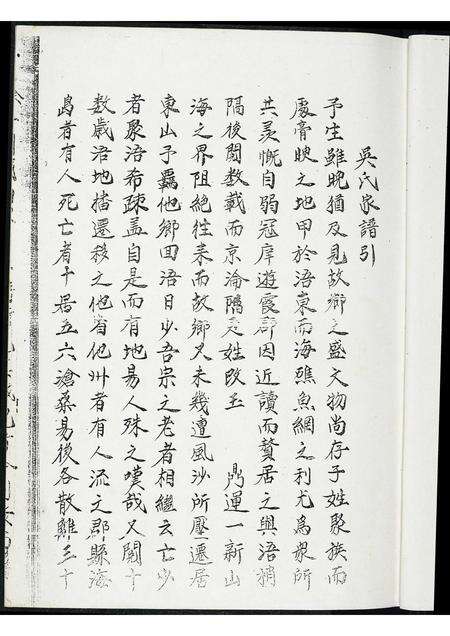 吳氏家譜引
予生雖晚猶及見故鄉之盛文物尚存子姓聚族而
處膏腴之地甲於浯東而海礁魚網之利尤為眾所
共羨慨自弱冠庠遊霞郡因近讀而贅居之與浯稍
隔後閱数載而京淪隅夷姓改玉　鼎運一新山
海之界阻絕往来而故鄉又未幾遭風沙所壓遷居
東山予羈他鄉回浯日少吾宗之老者相繼云亡少
者聚浯希疎盖自是而有地易人殊之嘆哉又閱十
数歲浯地播遷移之他省他州者有人流之郡縣海
島者有人死亡者十居五六滄桑易後各散雖三十